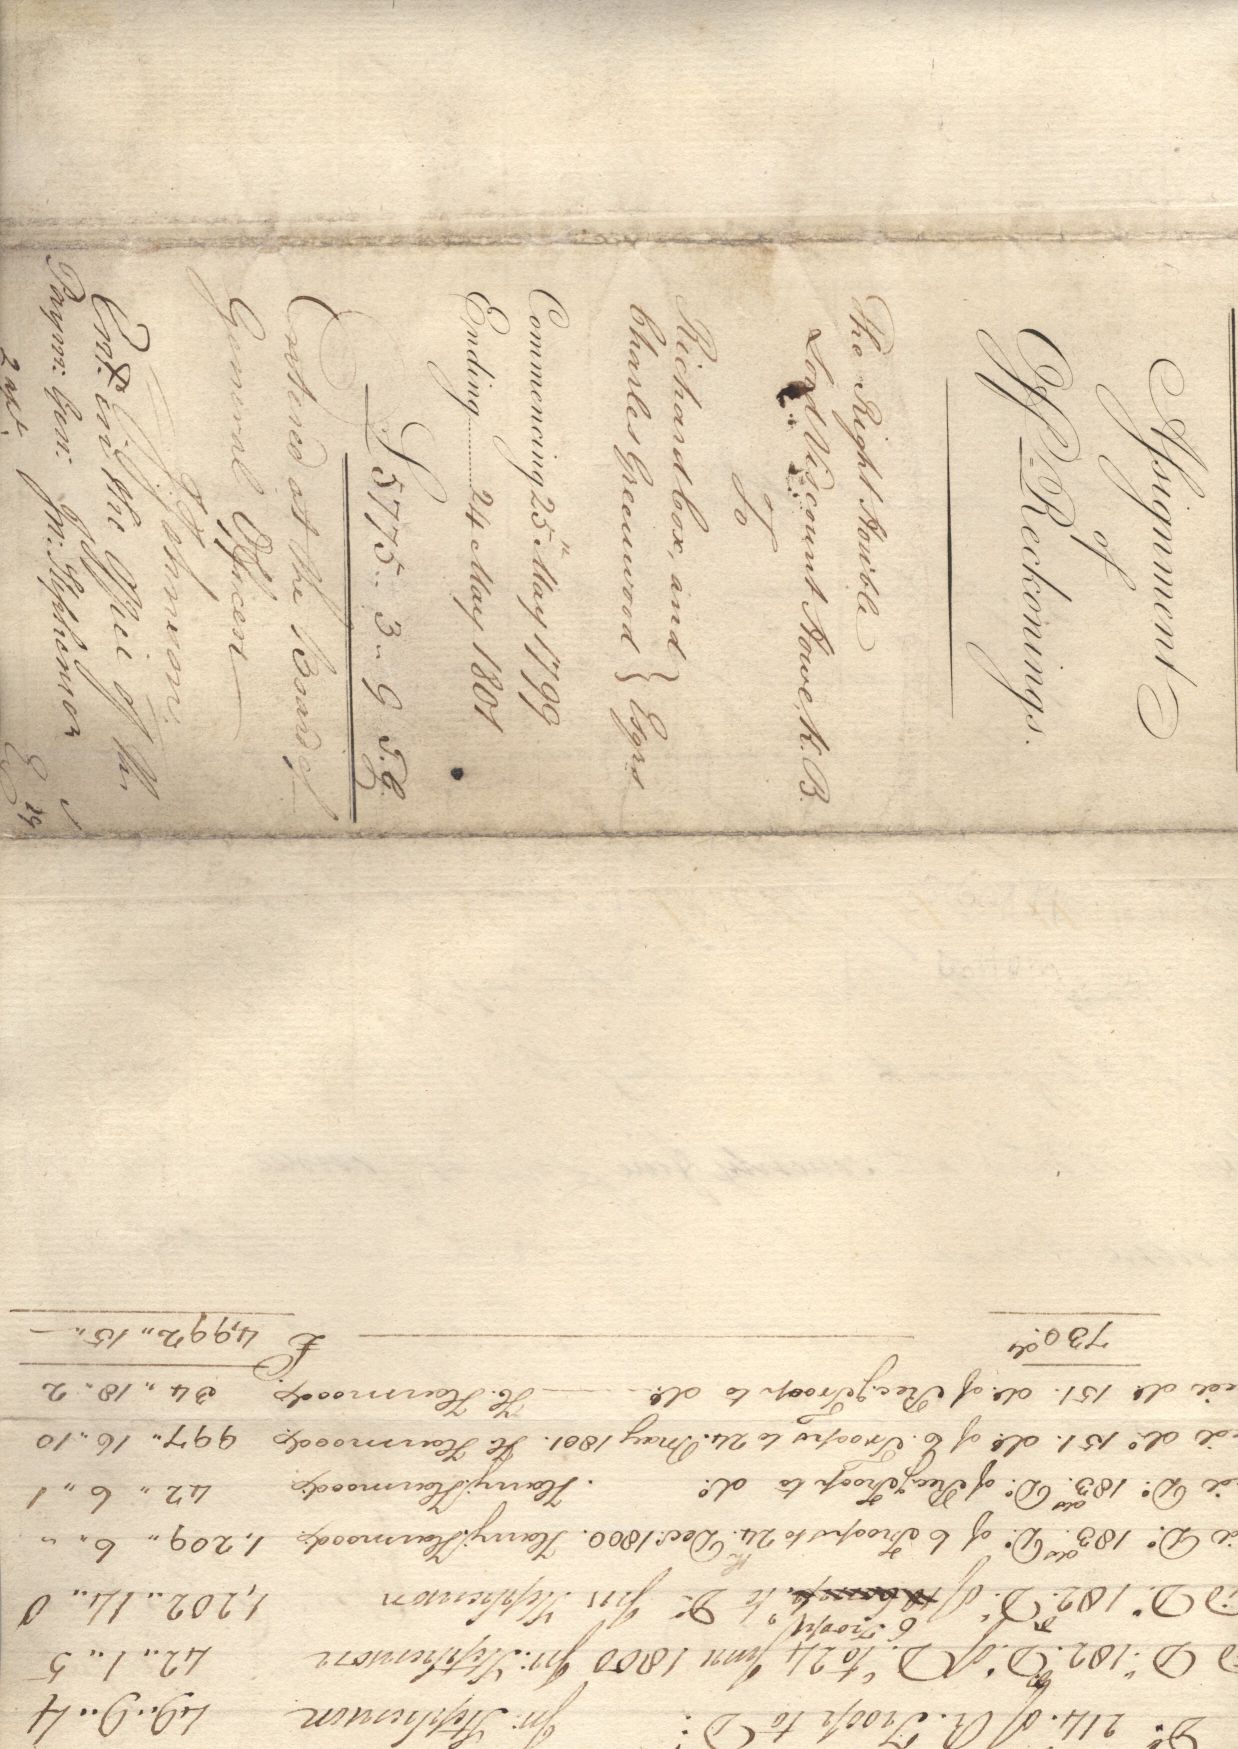 Assignment
of
Off-Reckonings.
The Right Honble
Lord Viscount Howe, K.B.
To
Richard Cox, and
Charles Greenwood } Esqrs
Commencing 25th May 1799
Ending........ 24 May 1801
£ 5775.. 3.. 9
Entered at the Board of
General Officers
J. Stephenson.
Ent.d in the Office of the
Paymr. Genl.
Jn. Stephenson
Do. 214. of R. Troop to Do: Jn. Stephenson 49.. 9.. 4
Do. 182. Do. of Do. to 24 June 1800 Jn. Stephenson 42.. 1.. 5
Do. 182. Do. of 6 Troops to Do. Jn Stephenson 1,202.. 14.. 0
Do. 183. ds Do. of 6 Troops to 24th Decr. 1800. Harry Harmood. 1,209.. 6.. ..
Do. 183. ds Do. of Recg. Troop to do. Harry Harmood. 42.. 6.. 1
do. 151. do. of 6. Troops to 24. May 1801. H. Harmood. 997.. 16.. 10
do. 151. do. of Recg. Troop to do. H. Harmood. 34.. 18.. 2
730 ds £ 4,992.. 15.. —